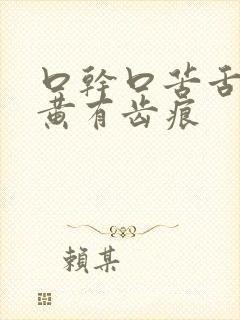 口幹口苦舌
黄有齿痕
賴某